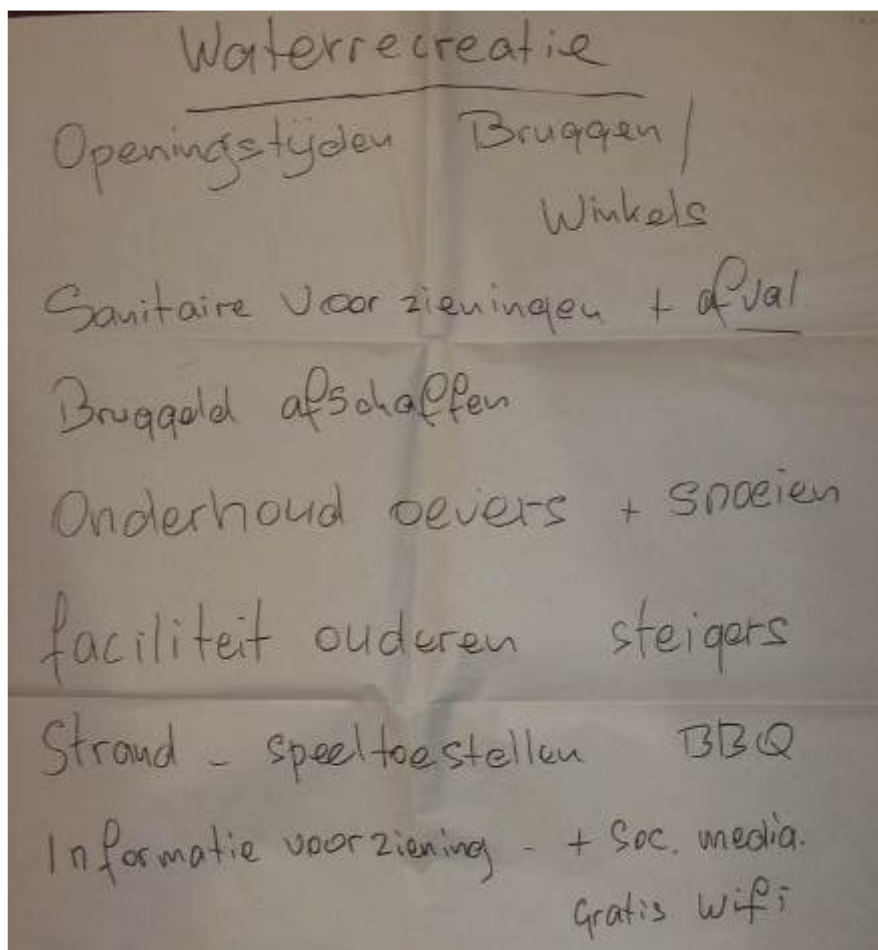 Waterrecreatie
Openingstijden Bruggen /
Winkels
Sanitaire voorzieningen + afval
Bruggeld afschaffen
Onderhoud oevers + snoeien
faciliteit ouderen steigers
Strand - speeltoestellen BBQ
Informatie voorziening - + Soc. media.
Gratis Wifi